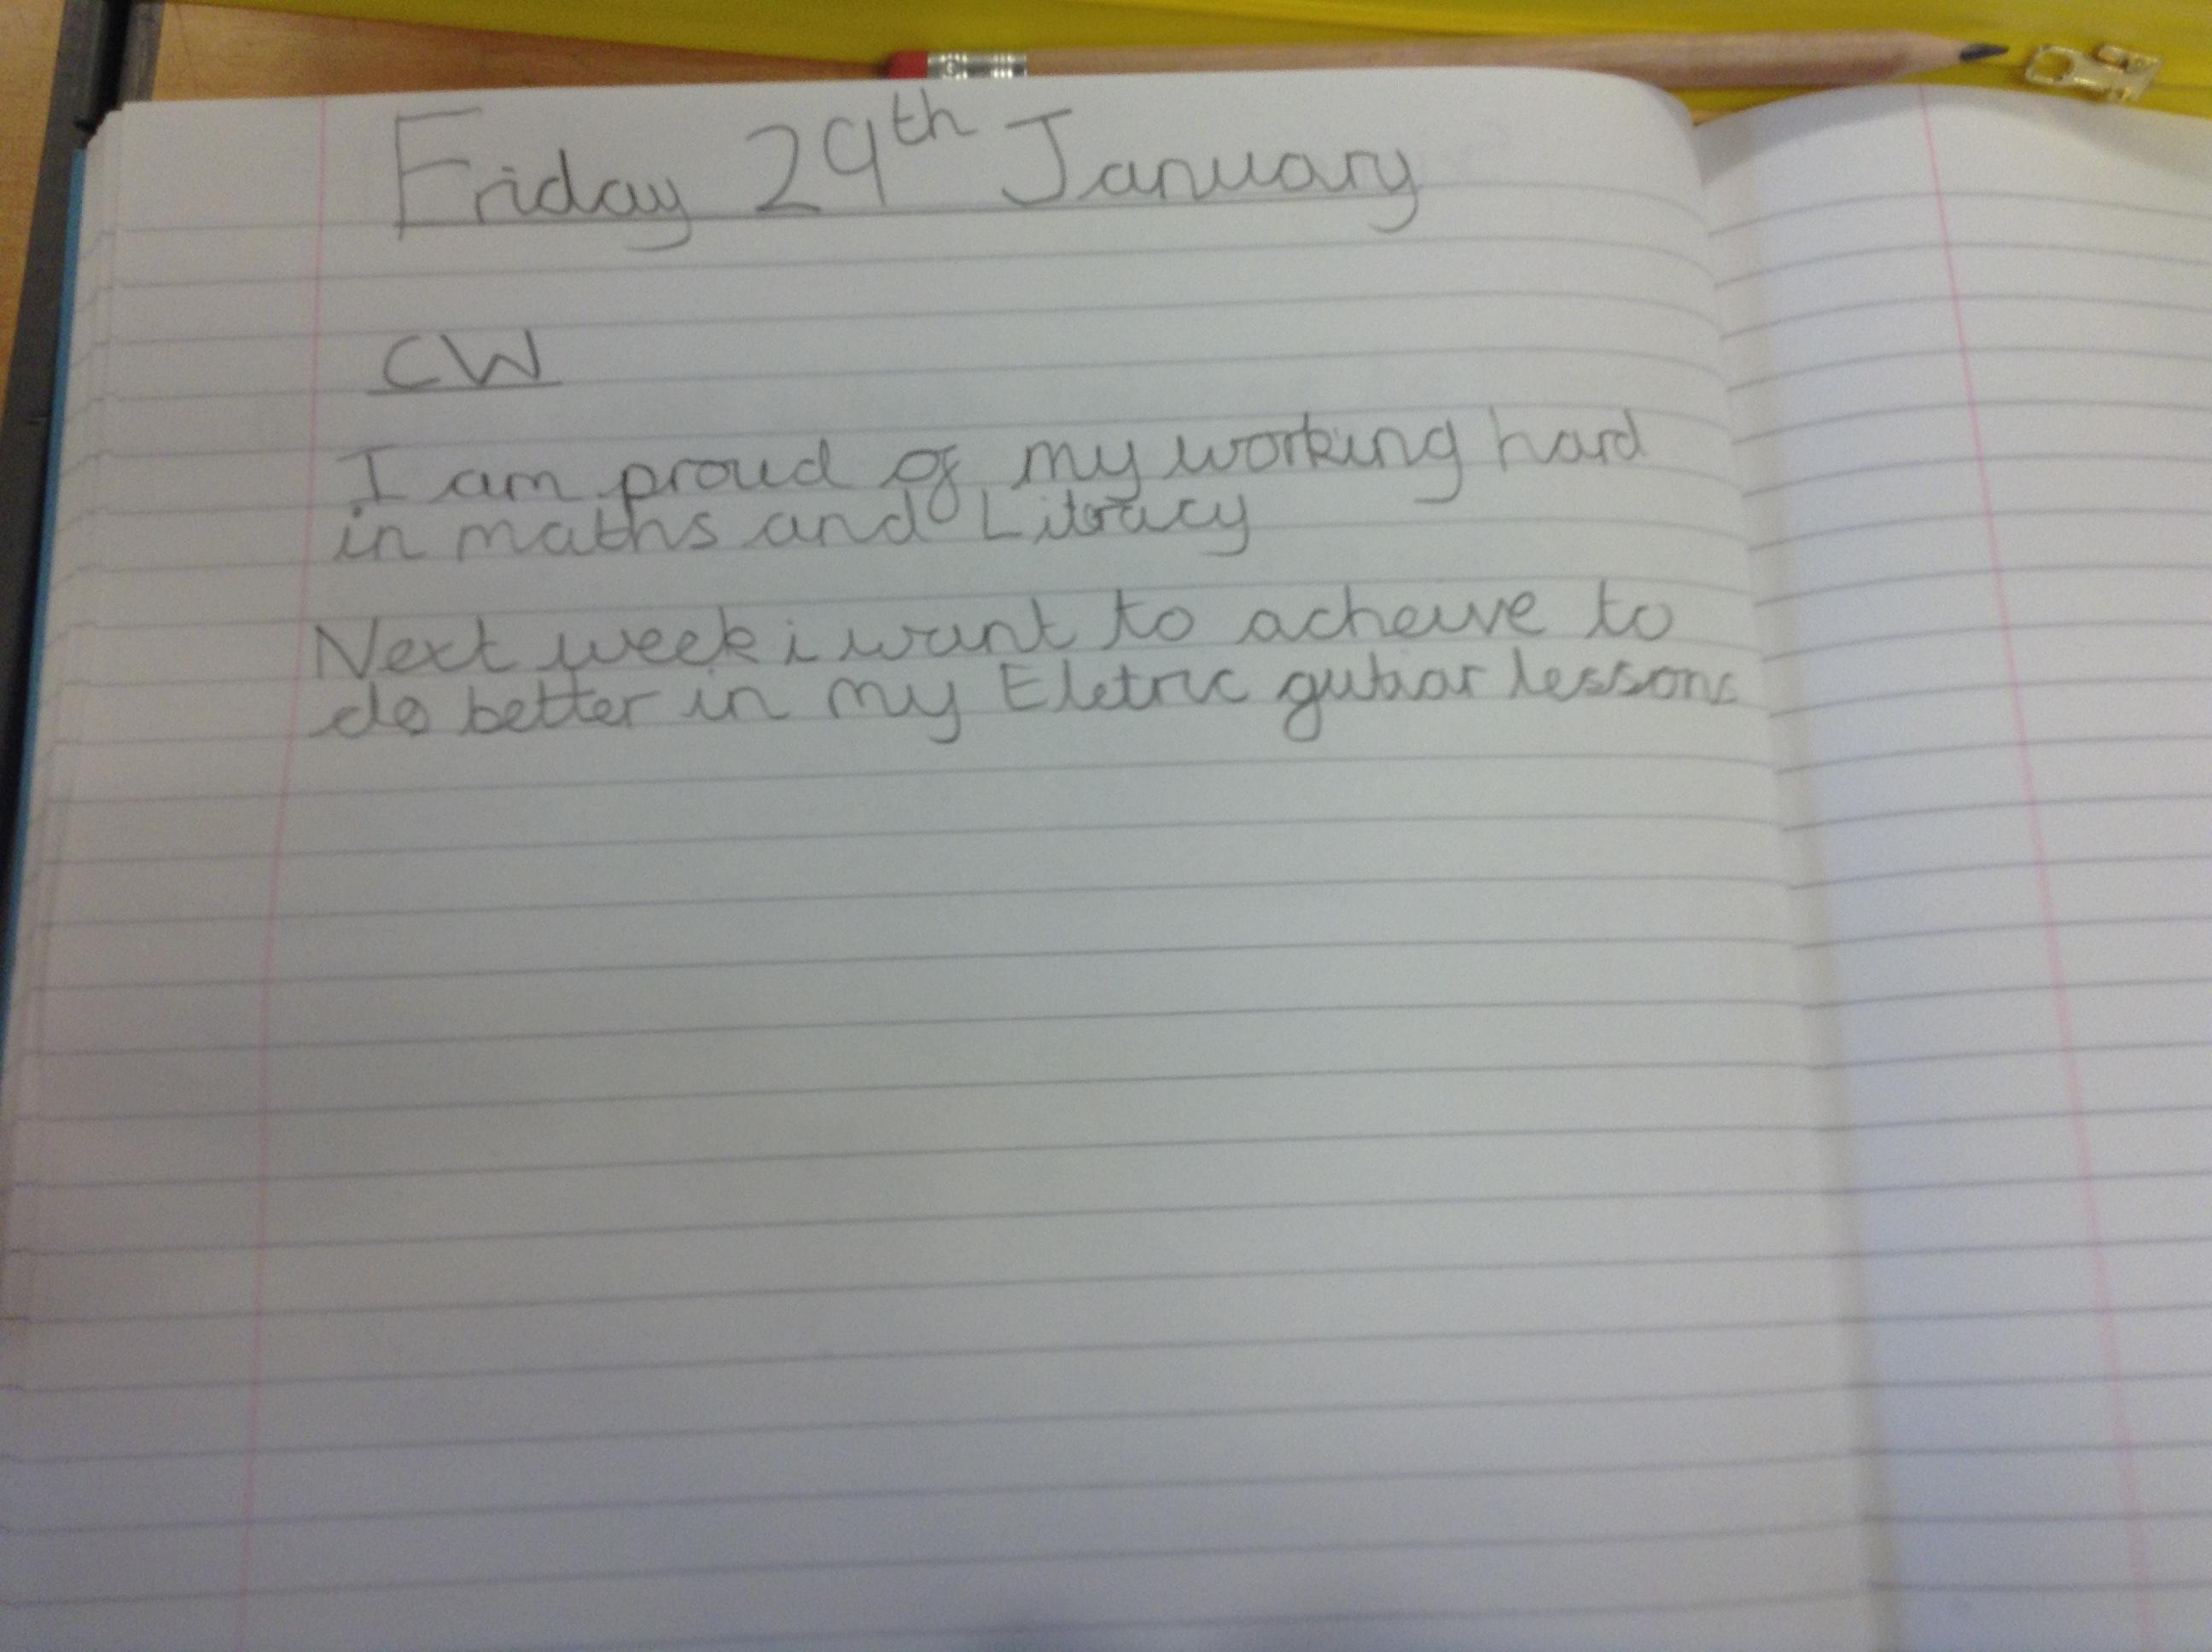 Friday 29th January
CW
I am proud of my working hard
in maths and Literacy
Next week i want to acheive to
do better in my Eletric gutiar lessons